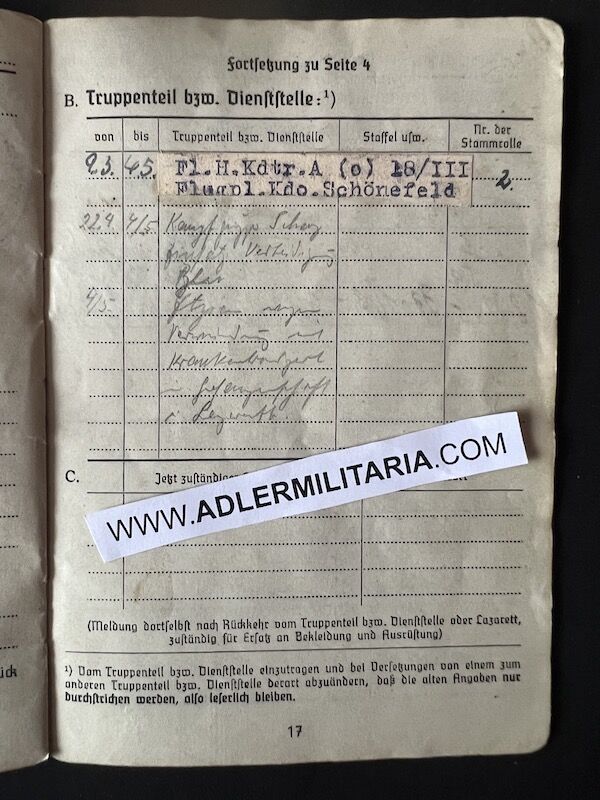 Fortsetzung zu Seite 4
B. Truppenteil bzw. Dienststelle:¹)
von bis Truppenteil bzw. Dienststelle Staffel usw. Nr. der Stammrolle
Fl.H.Kdtr.A (o) 18/III 2.
Flugpl.Kdo.Schönefeld
22.4. 4/5
Verteidigung
4/5.
Verwundung
i. Lazarett
C. Jetzt zuständiger
WWW.ADLERMILITARIA.COM
(Meldung dortselbst nach Rückkehr vom Truppenteil bzw. Dienststelle oder Lazarett,
zuständig für Ersatz an Bekleidung und Ausrüstung)
¹) Vom Truppenteil bzw. Dienststelle einzutragen und bei Versetzungen von einem zum
anderen Truppenteil bzw. Dienststelle derart abzuändern, daß die alten Angaben nur
durchstrichen werden, also leserlich bleiben.
17